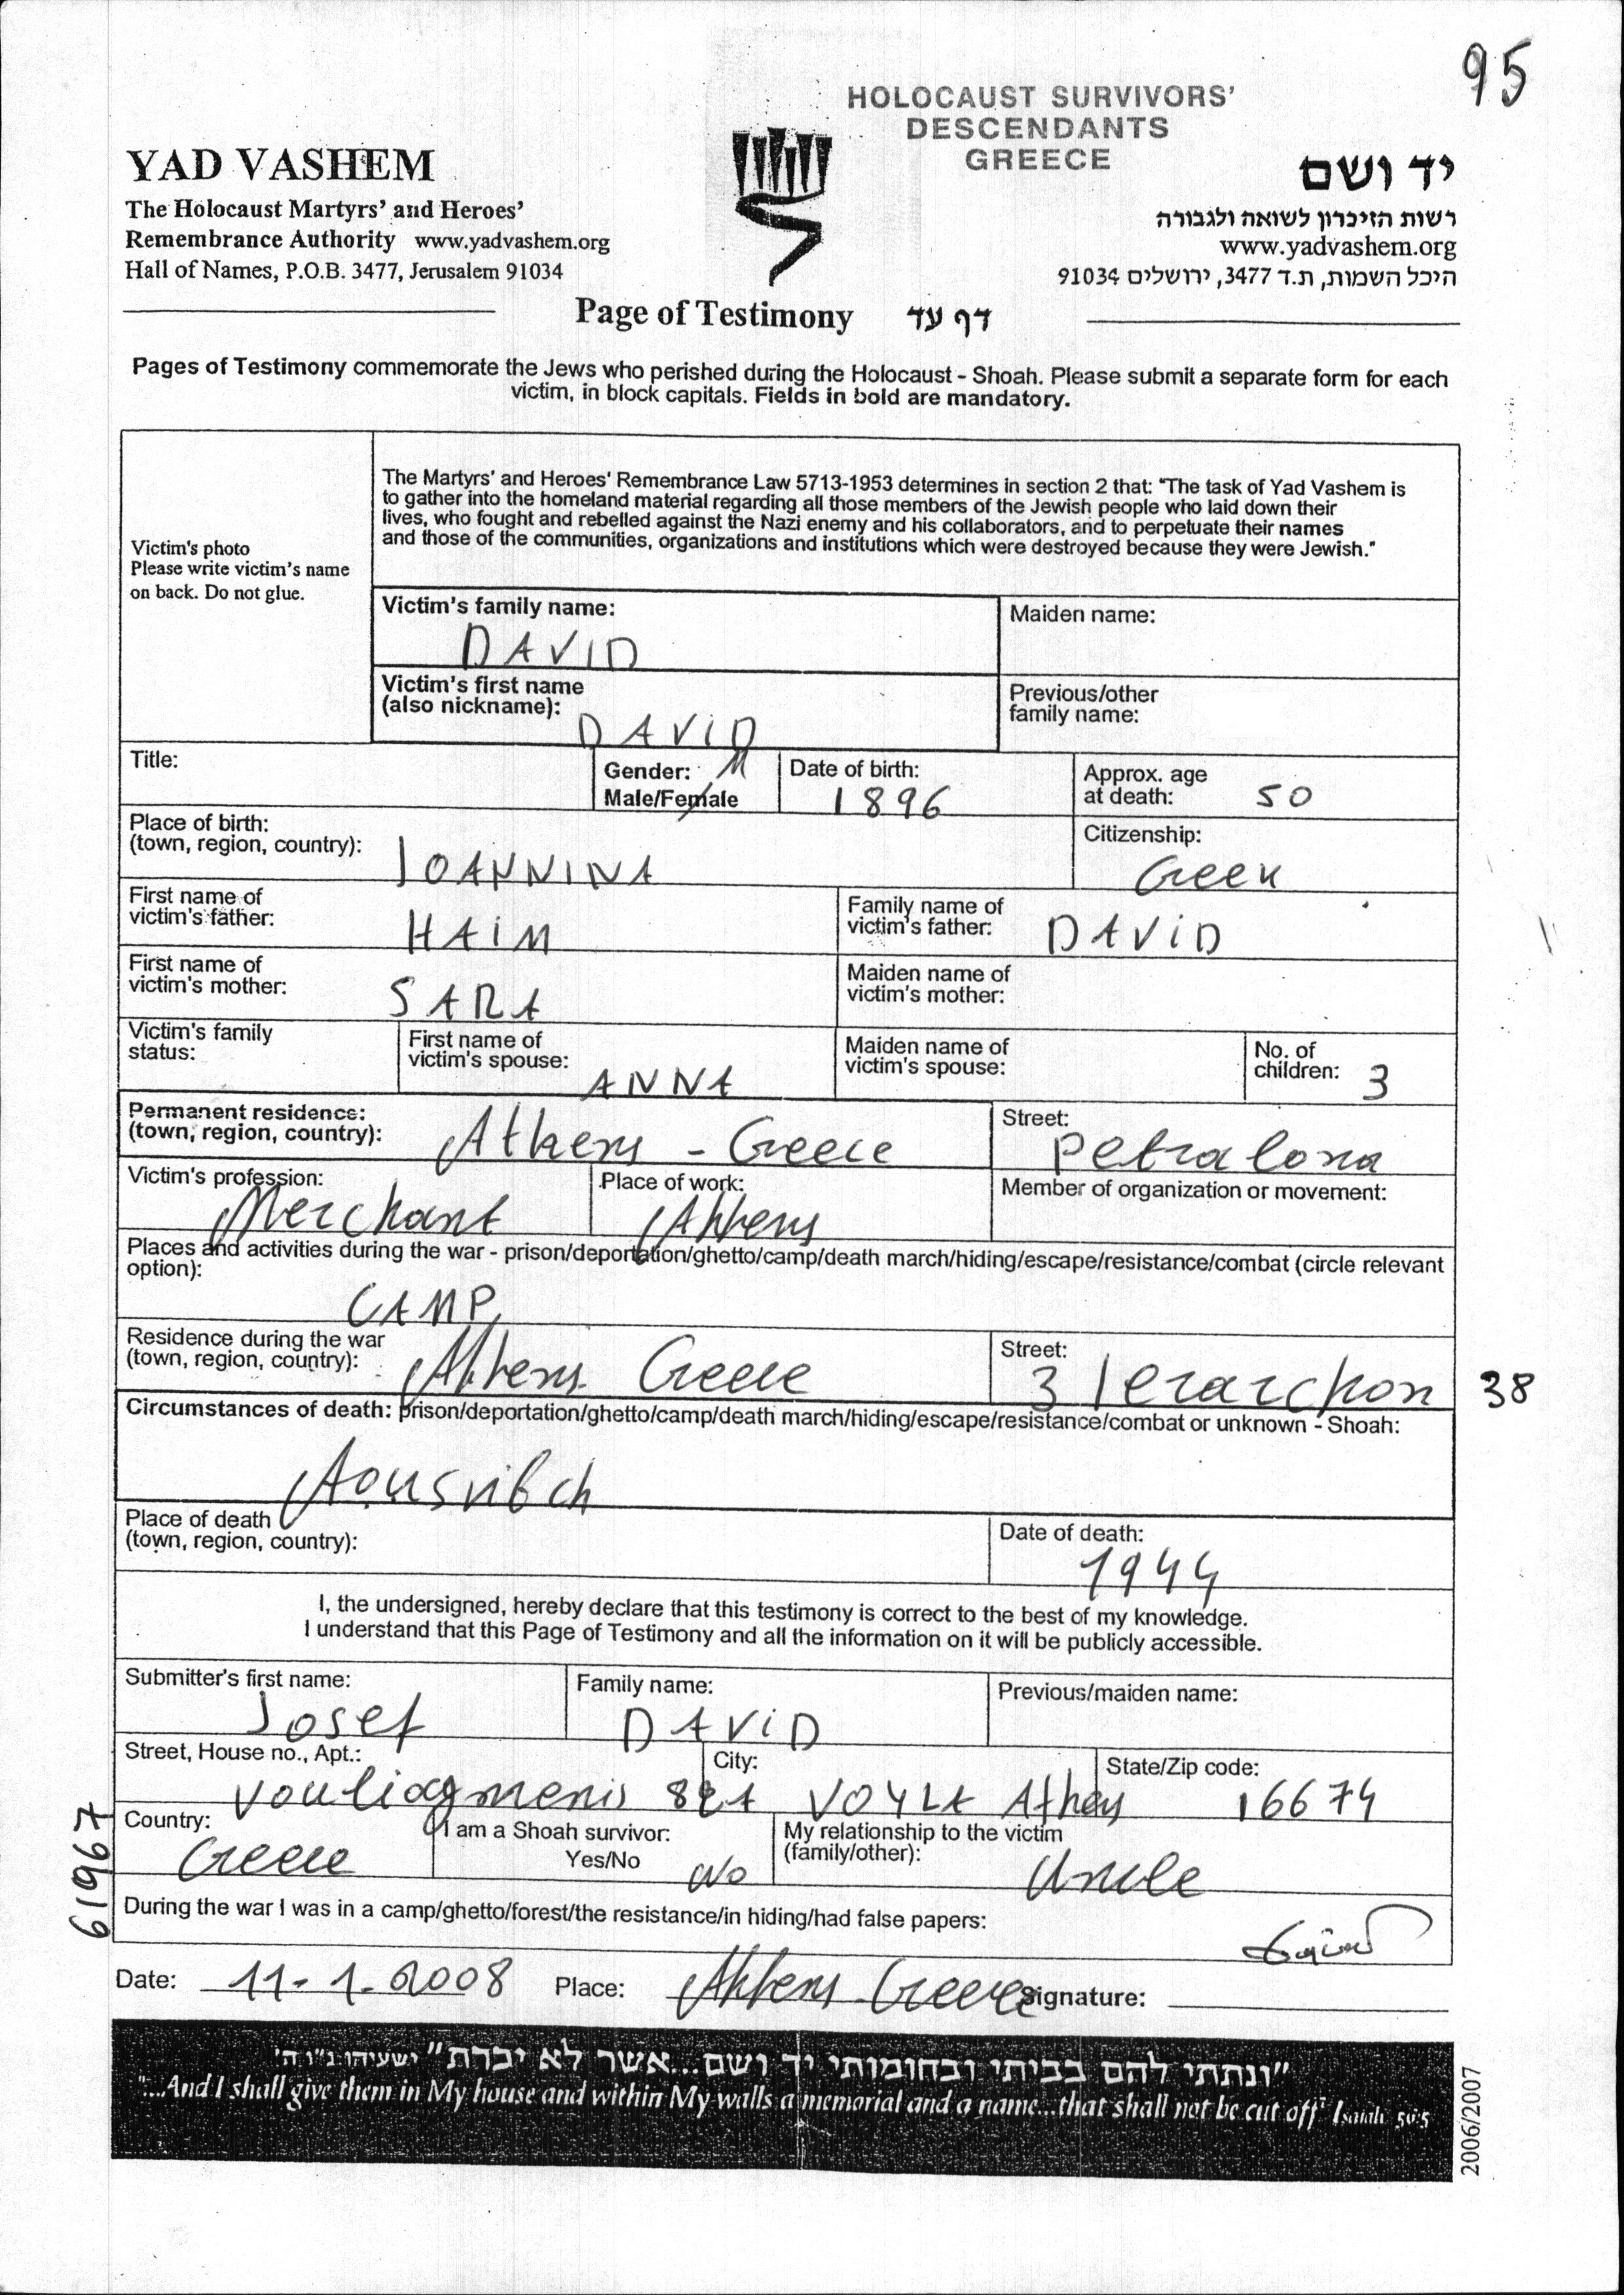 95
HOLOCAUST SURVIVORS'
DESCENDANTS
GREECE
YAD VASHEM
The Holocaust Martyrs' and Heroes'
Remembrance Authority www.yadvashem.org
Hall of Names, P.O.B. 3477, Jerusalem 91034
יד ושם
רשות הזיכרון לשואה ולגבורה
www.yadvashem.org
היכל השמות, ת.ד 3477, ירושלים 91034
Page of Testimony דף עד
Pages of Testimony commemorate the Jews who perished during the Holocaust - Shoah. Please submit a separate form for each
victim, in block capitals. Fields in bold are mandatory.
Victim's photo
Please write victim's name
on back. Do not glue.
The Martyrs' and Heroes' Remembrance Law 5713-1953 determines in section 2 that: "The task of Yad Vashem is
to gather into the homeland material regarding all those members of the Jewish people who laid down their
lives, who fought and rebelled against the Nazi enemy and his collaborators, and to perpetuate their names
and those of the communities, organizations and institutions which were destroyed because they were Jewish."
Victim's family name:
DAVID
Maiden name:
Victim's first name
(also nickname):
DAViD
Previous/other
family name:
Title:
Gender: M
Male/Female
Date of birth:
1896
Approx. age
at death: 50
Place of birth:
(town, region, country): IOANNINA
Citizenship:
Greek
First name of
victim's father: HAIM
Family name of
victim's father: DAViD
First name of
victim's mother: SARA
Maiden name of
victim's mother:
Victim's family
status:
First name of
victim's spouse: ANNA
Maiden name of
victim's spouse:
No. of
children: 3
Permanent residence:
(town, region, country): Athens - Greece
Street:
Petralona
Victim's profession:
Merchant
Place of work:
Athens
Member of organization or movement:
Places and activities during the war - prison/deportation/ghetto/camp/death march/hiding/escape/resistance/combat (circle relevant
option):
CAMP
Residence during the war
(town, region, country): Athens Greece
Street:
3 Ierarchon 38
Circumstances of death: prison/deportation/ghetto/camp/death march/hiding/escape/resistance/combat or unknown - Shoah:
Aousvitch
Place of death
(town, region, country):
Date of death:
1944
I, the undersigned, hereby declare that this testimony is correct to the best of my knowledge.
I understand that this Page of Testimony and all the information on it will be publicly accessible.
Submitter's first name:
Josef
Family name:
DAViD
Previous/maiden name:
Street, House no., Apt.:
Vouliagmenis
City:
VOYLA Athens
State/Zip code:
16674
Country:
Greece
I am a Shoah survivor:
Yes/No No
My relationship to the victim
(family/other):
Uncle
During the war I was in a camp/ghetto/forest/the resistance/in hiding/had false papers:
Date: 11-1-2008 Place: Athens Greece Signature:
61967
"ונתתי להם בביתי ובחומותי יד ושם...אשר לא יכרת" ישעיהו נ"ו ה'
"...And I shall give them in My house and within My walls a memorial and a name...that shall not be cut off" Isaiah 56:5
2006/2007